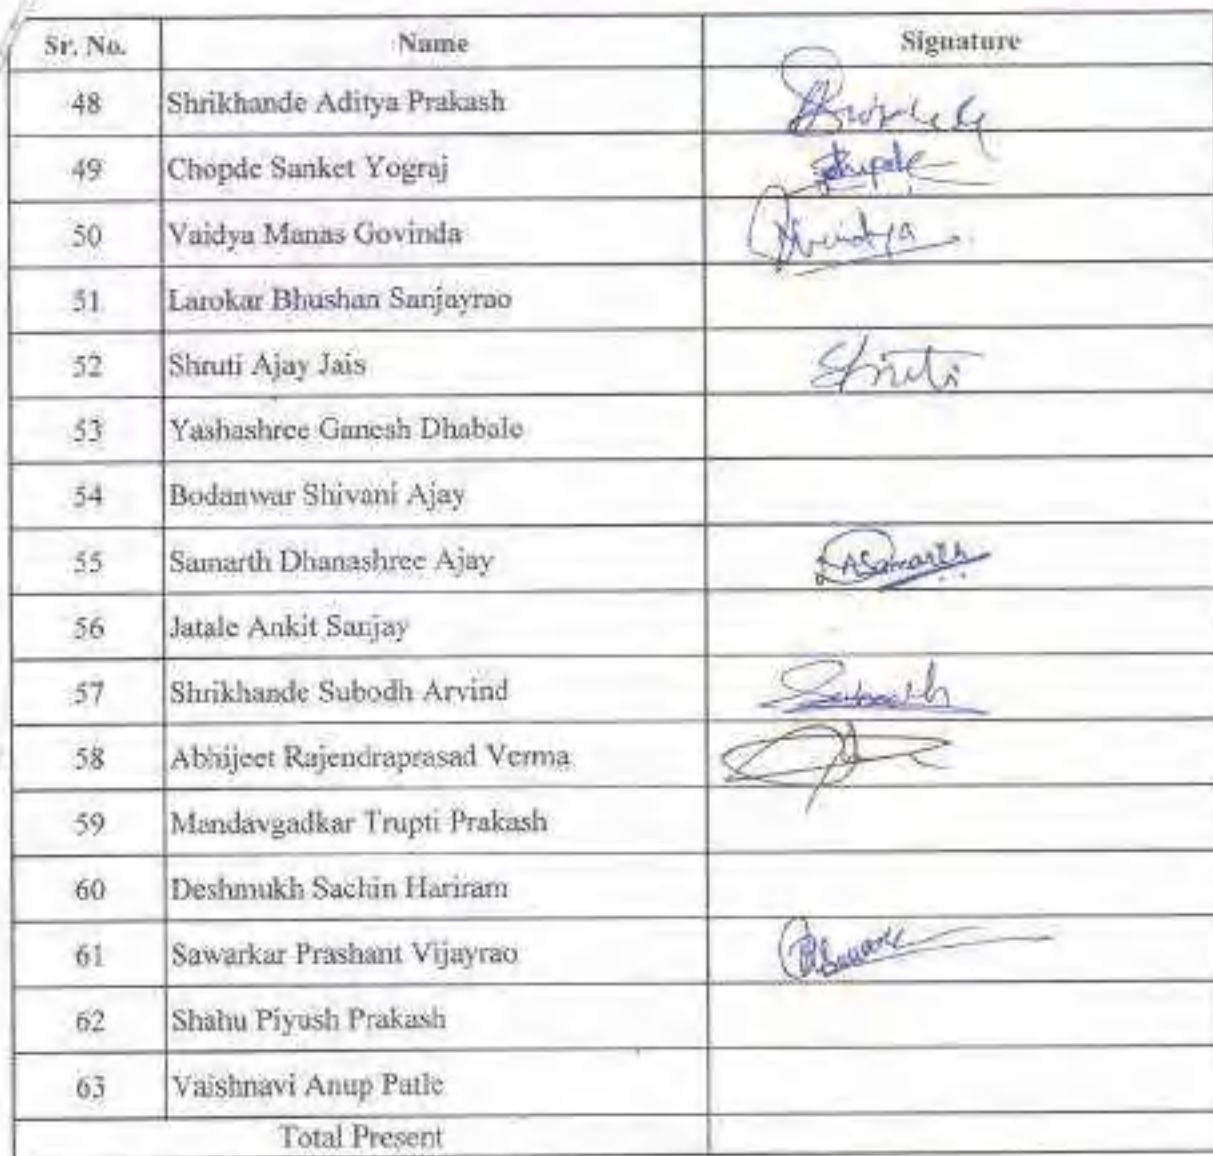 Sr. No. Name Signature
48 Shrikhande Aditya Prakash
49 Chopde Sanket Yograj
50 Vaidya Manas Govinda
51 Larokar Bhushan Sanjayrao
52 Shruti Ajay Jais Shruti
53 Yashashree Ganesh Dhabale
54 Bodanwar Shivani Ajay
55 Samarth Dhanashree Ajay
56 Jatale Ankit Sanjay
57 Shrikhande Subodh Arvind Subodh
58 Abhijeet Rajendraprasad Verma
59 Mandavgadkar Trupti Prakash
60 Deshmukh Sachin Hariram
61 Sawarkar Prashant Vijayrao
62 Shahu Piyush Prakash
63 Vaishnavi Anup Patle
Total Present